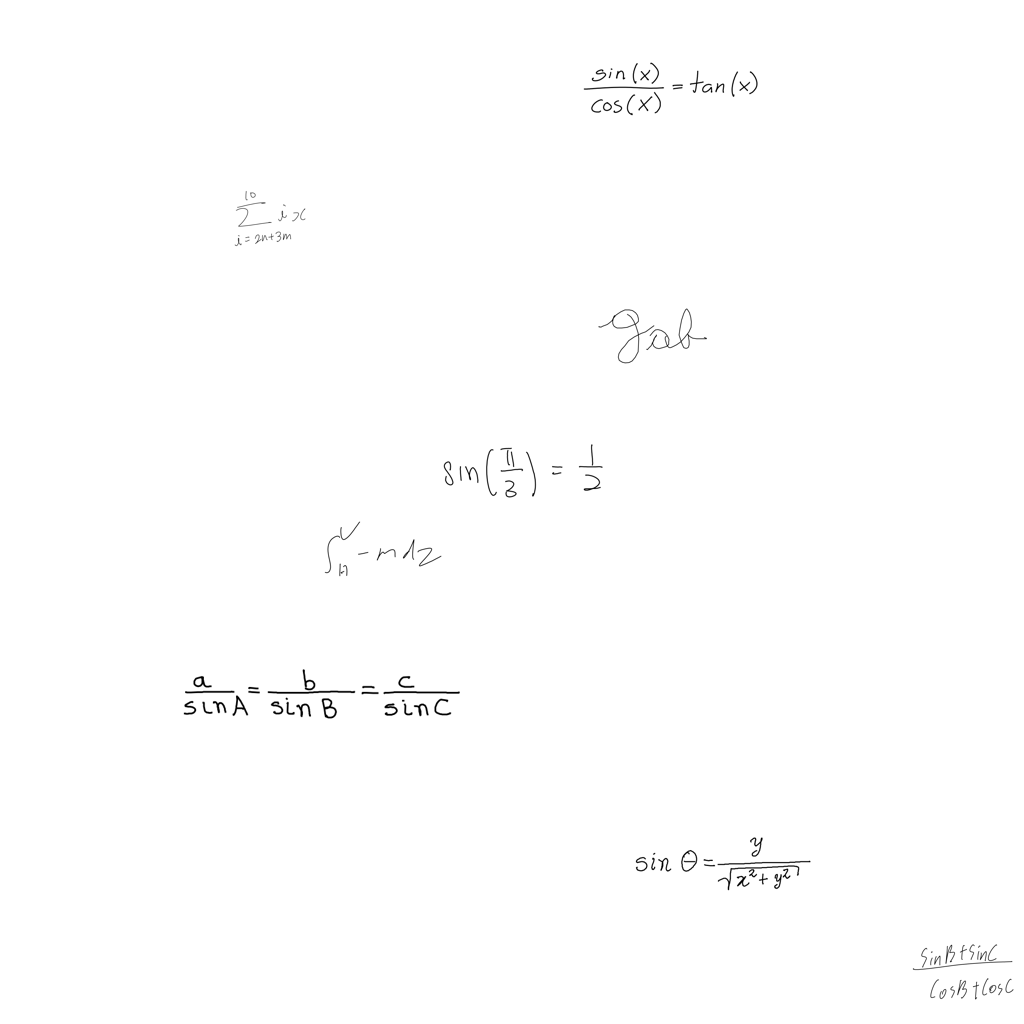 \frac{sin(x)}{cos(x)} = tan(x)
\sum_{i=2n+3m}^{10} ix
gab
sin(\frac{π}{3}) = \frac{1}{2}
\int_{A}^{V} -m dz
\frac{a}{sin A} = \frac{b}{sin B} = \frac{c}{sin C}
sin θ = \frac{y}{\sqrt{x^2 + y^2}}
\frac{sin B + sin C}{cos B + cos C}